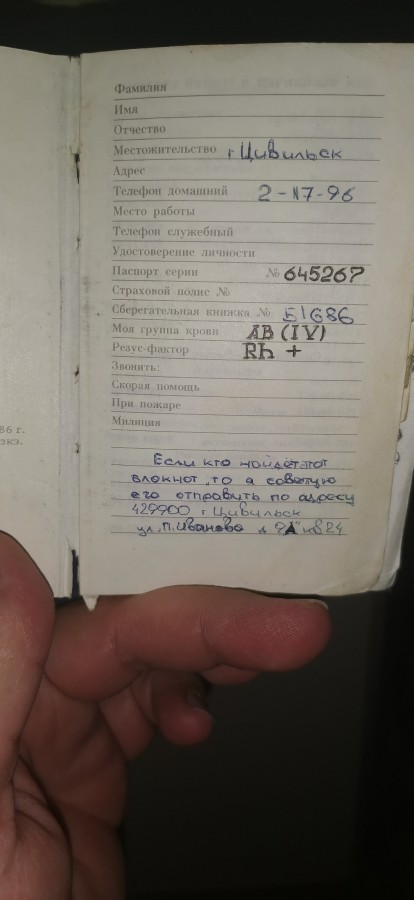 86 г.
экз.
Фамилия
Имя
Отчество
Местожительство г Цивильск
Адрес
Телефон домашний 2-17-96
Место работы
Телефон служебный
Удостоверение личности
Паспорт серии № 645267
Страховой полис №
Сберегательная книжка № 51686
Моя группа крови AB (IV)
Резус-фактор Rh +
Звонить:
Скорая помощь
При пожаре
Милиция
Если кто найдёт этот
блокнот, то я советую
его отправить по адресу
429900 г Цивильск
ул. П. Иванова д 9"А" кв 24